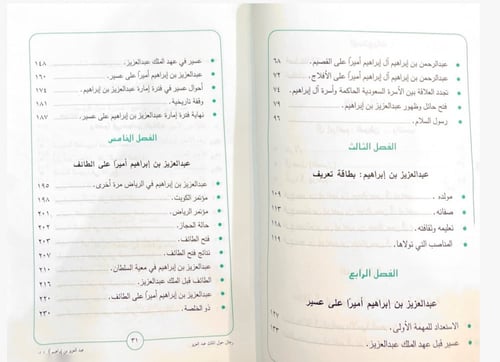 عبدالرحمن بن إبراهيم آل إبراهيم أميرًا على القصيم. ٦٨
عبدالرحمن بن إبراهيم آل إبراهيم أميرًا على الأفلاج. ٧٢
تجدد العلاقة بين الأسرة السعودية الحاكمة وأسرة آل إبراهيم. ٧٤
فتح حائل وظهور عبدالعزيز بن إبراهيم. ٧٩
رسول السلام. ٩٦
الفصل الثالث
عبدالعزيز بن إبراهيم: بطاقة تعريف
مولده. ١٠٩
صفاته. ١١٣
تعليمه وثقافته. ١١٨
المناصب التي تولاها. ١١٩
الفصل الرابع
عبدالعزيز بن إبراهيم أميرًا على عسير
الاستعداد للمهمة الأولى. ١٢٧
عسير قبل عهد الملك عبدالعزيز. ١٣٣
عسير في عهد الملك عبدالعزيز. ١٤٨
عبدالعزيز بن إبراهيم أميرًا على عسير. ١٦٠
أحوال عسير في فترة إمارة عبدالعزيز بن إبراهيم. ١٧٤
وقفة تاريخية. ١٨١
نهاية فترة إمارة عبدالعزيز بن إبراهيم على عسير. ١٨٧
الفصل الخامس
عبدالعزيز بن إبراهيم أميرًا على الطائف
عبدالعزيز بن إبراهيم في الرياض مرة أخرى. ١٩٥
مؤتمر الكويت. ١٩٨
مؤتمر الرياض. ٢٠١
حالة الحجاز. ٢٠٢
فتح الطائف. ٢٠٣
نتائج فتح الطائف. ٢٠٧
عبدالعزيز بن إبراهيم في معية السلطان. ٢١٠
الطائف قبل الملك عبدالعزيز. ٢١٦
عبدالعزيز بن إبراهيم أميرًا على الطائف. ٢٢٠
ذو الخلصة. ٢٣٠
٣١
رجال حول الملك عبد العزيز
عبد العزيز بن إبراهيم